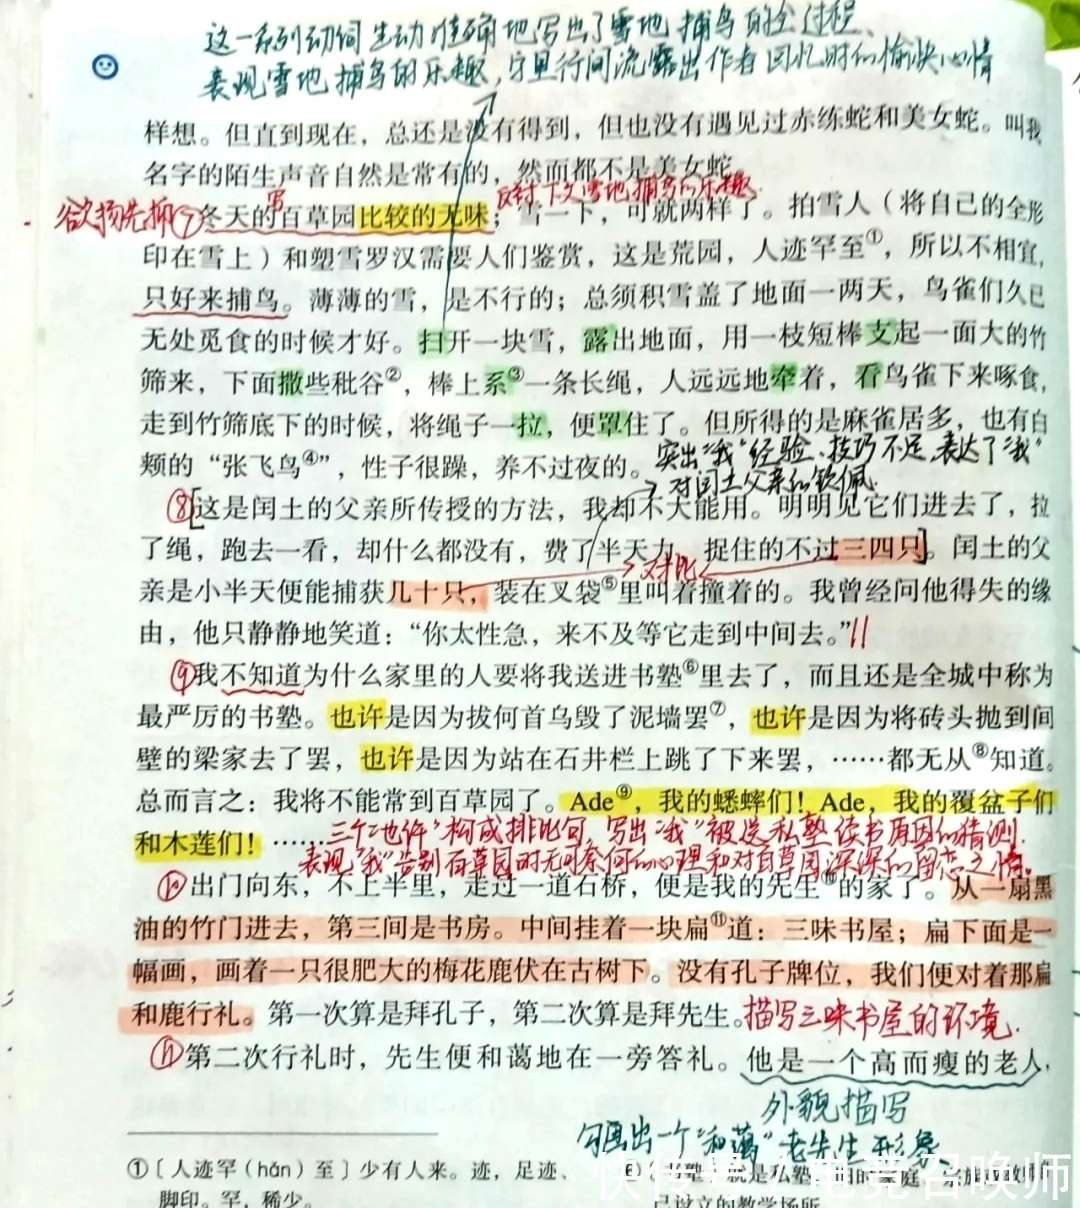 这一系列动词生动准确地写出了雪地捕鸟的全过程、
表现雪地捕鸟的乐趣,字里行间流露出作者回忆时的愉快心情
样想。但直到现在,总还是没有得到,但也没有遇见过赤练蛇和美女蛇。叫我
名字的陌生声音自然是常有的,然而都不是美女蛇
写 反衬下文雪地捕鸟的乐趣.
欲扬先抑⑦冬天的百草园比较的无味;雪一下,可就两样了。拍雪人(将自己的全形
印在雪上)和塑雪罗汉需要人们鉴赏,这是荒园,人迹罕至①,所以不相宜,
只好来捕鸟。薄薄的雪,是不行的;总须积雪盖了地面一两天,鸟雀们久已
无处觅食的时候才好。扫开一块雪,露出地面,用一枝短棒支起一面大的竹
筛来,下面撒些秕谷②,棒上系③一条长绳,人远远地牵着,看鸟雀下来啄食,
走到竹筛底下的时候,将绳子一拉,便罩住了。但所得的是麻雀居多,也有白
颊的“张飞鸟④”,性子很躁,养不过夜的。
突出“我”经验、技巧不足,表达了“我”
对闰土父亲的钦佩.
⑧[这是闰土的父亲所传授的方法,我却不大能用。明明见它们进去了,拉
了绳,跑去一看,却什么都没有,费了半天力,捉住的不过三四只]。闰土的父
对比
亲是小半天便能捕获几十只,装在叉袋⑤里叫着撞着的。我曾经问他得失的缘
由,他只静静地笑道:“你太性急,来不及等它走到中间去。”//
⑨我不知道为什么家里的人要将我送进书塾⑥里去了,而且还是全城中称为
最严厉的书塾。也许是因为拔何首乌毁了泥墙罢⑦,也许是因为将砖头抛到间
壁的梁家去了罢,也许是因为站在石井栏上跳了下来罢,……都无从⑧知道。
总而言之:我将不能常到百草园了。Ade⑨,我的蟋蟀们!Ade,我的覆盆子们
和木莲们!……
三个“也许”构成排比句,写出“我”被送私塾读书原因的猜测.
表现“我”告别百草园时无可奈何的心理和对百草园深深的留恋之情。
⑩出门向东,不上半里,走过一道石桥,便是我的先生⑩的家了。从一扇黑
油的竹门进去,第三间是书房。中间挂着一块扁⑪道:三味书屋;扁下面是一
幅画,画着一只很肥大的梅花鹿伏在古树下。没有孔子牌位,我们便对着那扁
和鹿行礼。第一次算是拜孔子,第二次算是拜先生。描写三味书屋的环境.
⑪第二次行礼时,先生便和蔼地在一旁答礼。他是一个高而瘦的老人,
外貌描写
勾画出一个“和蔼”老先生形象
①〔人迹罕(hǎn)至〕少有人来。迹,足迹、
脚印。罕,稀少。
就是私塾
已设立的教学场所
电竞召唤师